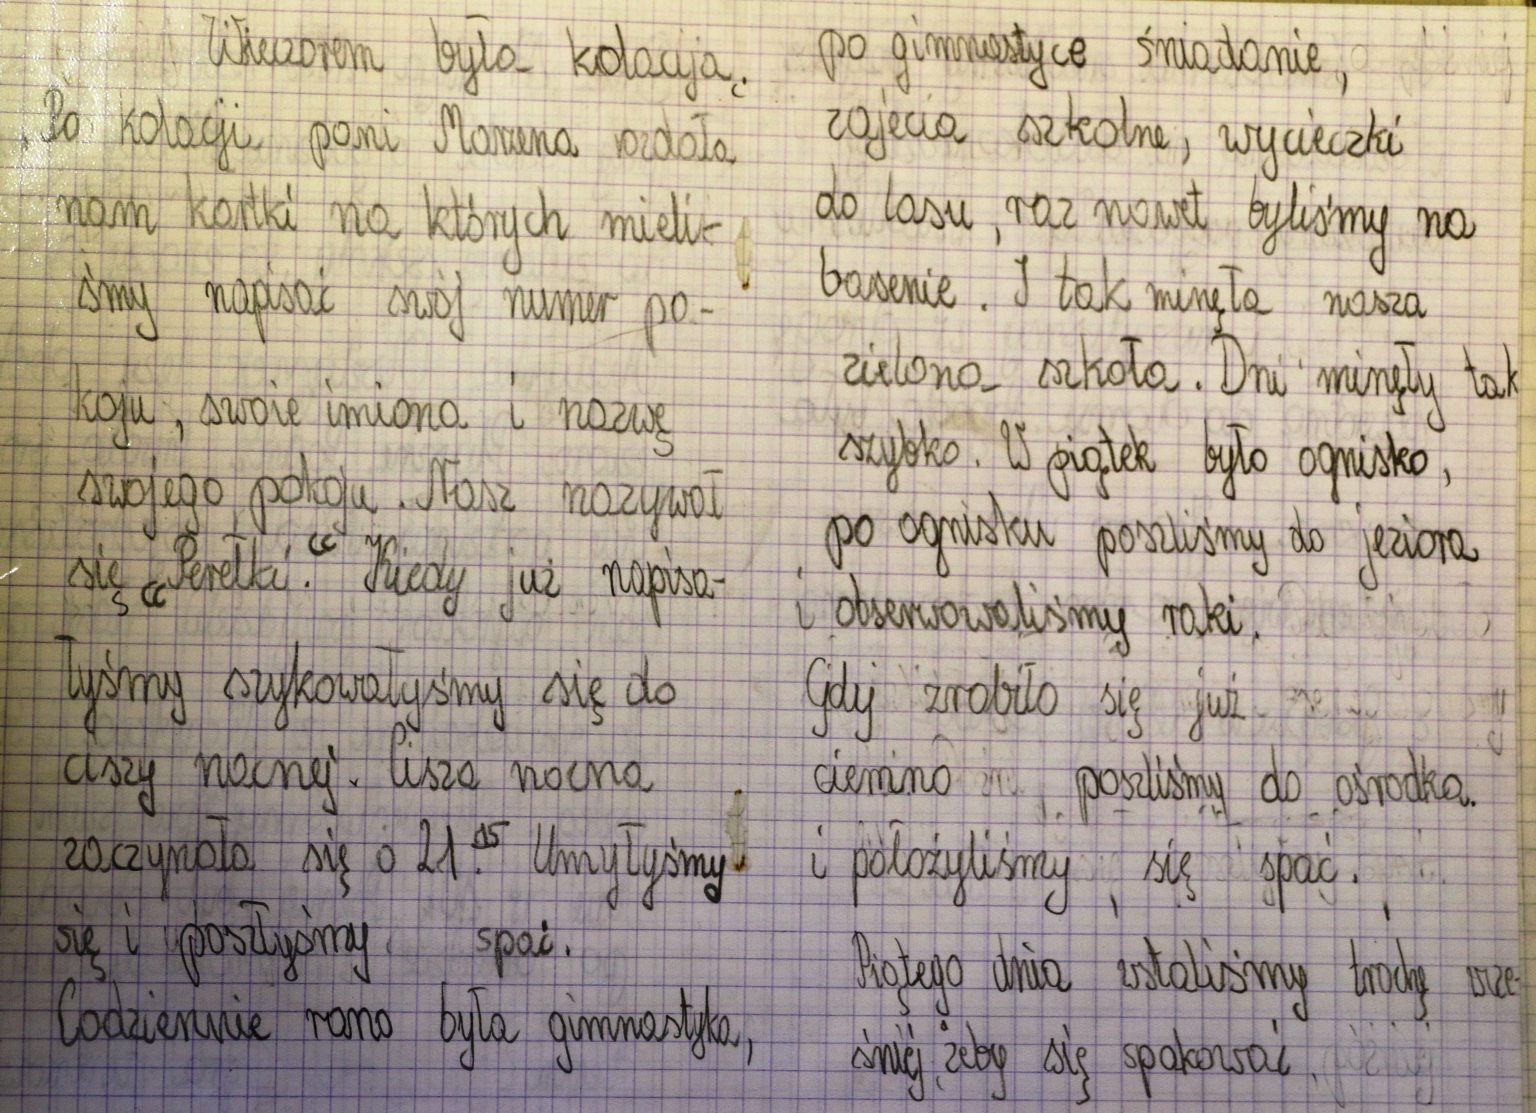 Wieczorem była kolacja.
Po kolacji pani Marzena rozdała
nam kartki na których mieli-
śmy napisać swój numer po-
koju, swoje imiona i nazwę
swojego pokoju. Nasz nazywał
się „Perełki". Kiedy już napisa-
łyśmy szykowałyśmy się do
ciszy nocnej. Cisza nocna
zaczynała się o 21.15 Umyłyśmy
się i poszłyśmy spać.
Codziennie rano była gimnastyka,
po gimnastyce śniadanie,
zajęcia szkolne, wycieczki
do lasu, raz nawet byliśmy na
basenie. I tak minęła nasza
zielona szkoła. Dni minęły tak
szybko. W piątek było ognisko,
po ognisku poszliśmy do jeziora
i obserwowaliśmy raki.
Gdy zrobiło się już
ciemno poszliśmy do ośrodka.
i położyliśmy się spać.
Piątego dnia wstaliśmy trochę wcze-
śniej, żeby się spakować